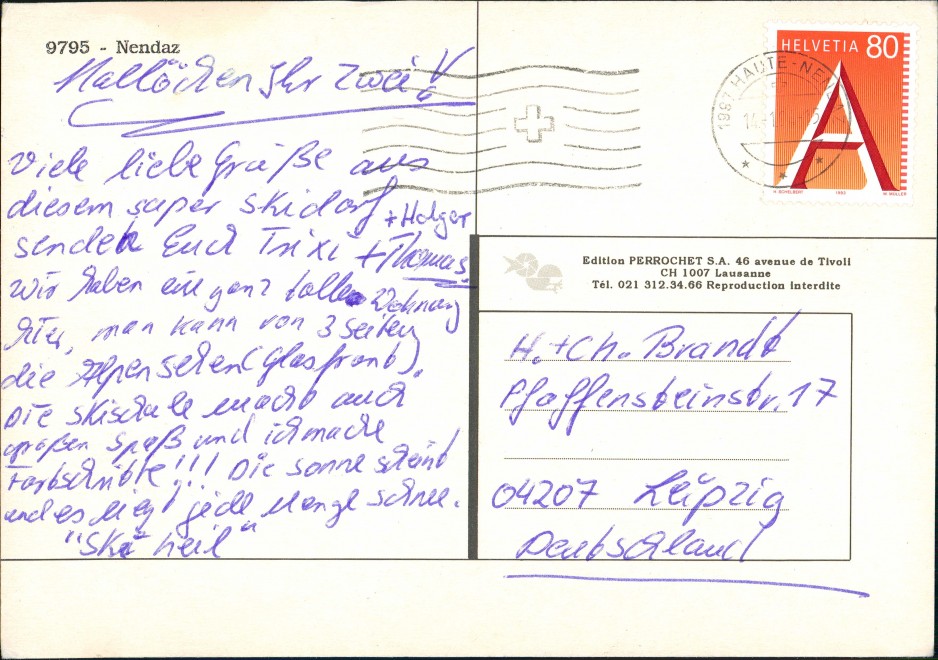 9795 - Nendaz
Hallöchen Ihr Zwei!
Viele liebe Grüße aus
diesem super Skidorf
senden Euch Trixi + Thomas
+ Holger
wir haben eine ganz tolle Wohnung
hier, man kann von 3 Seiten
die Alpen sehen (Glasfront).
Die Skischule macht auch
großen Spaß und ich mache
Fortschritte!!! Die Sonne scheint
und es liegt jede Menge Schnee.
"Ski heil"
HELVETIA 80
1997 HAUTE-NENDAZ
H. SCHELBERT 1993 M. MÜLLER
Edition PERROCHET S.A. 46 avenue de Tivoli
CH 1007 Lausanne
Tél. 021 312.34.66 Reproduction interdite
H. + Ch. Brandt
Pfaffensteinstr. 17
04207 Leipzig
Deutschland